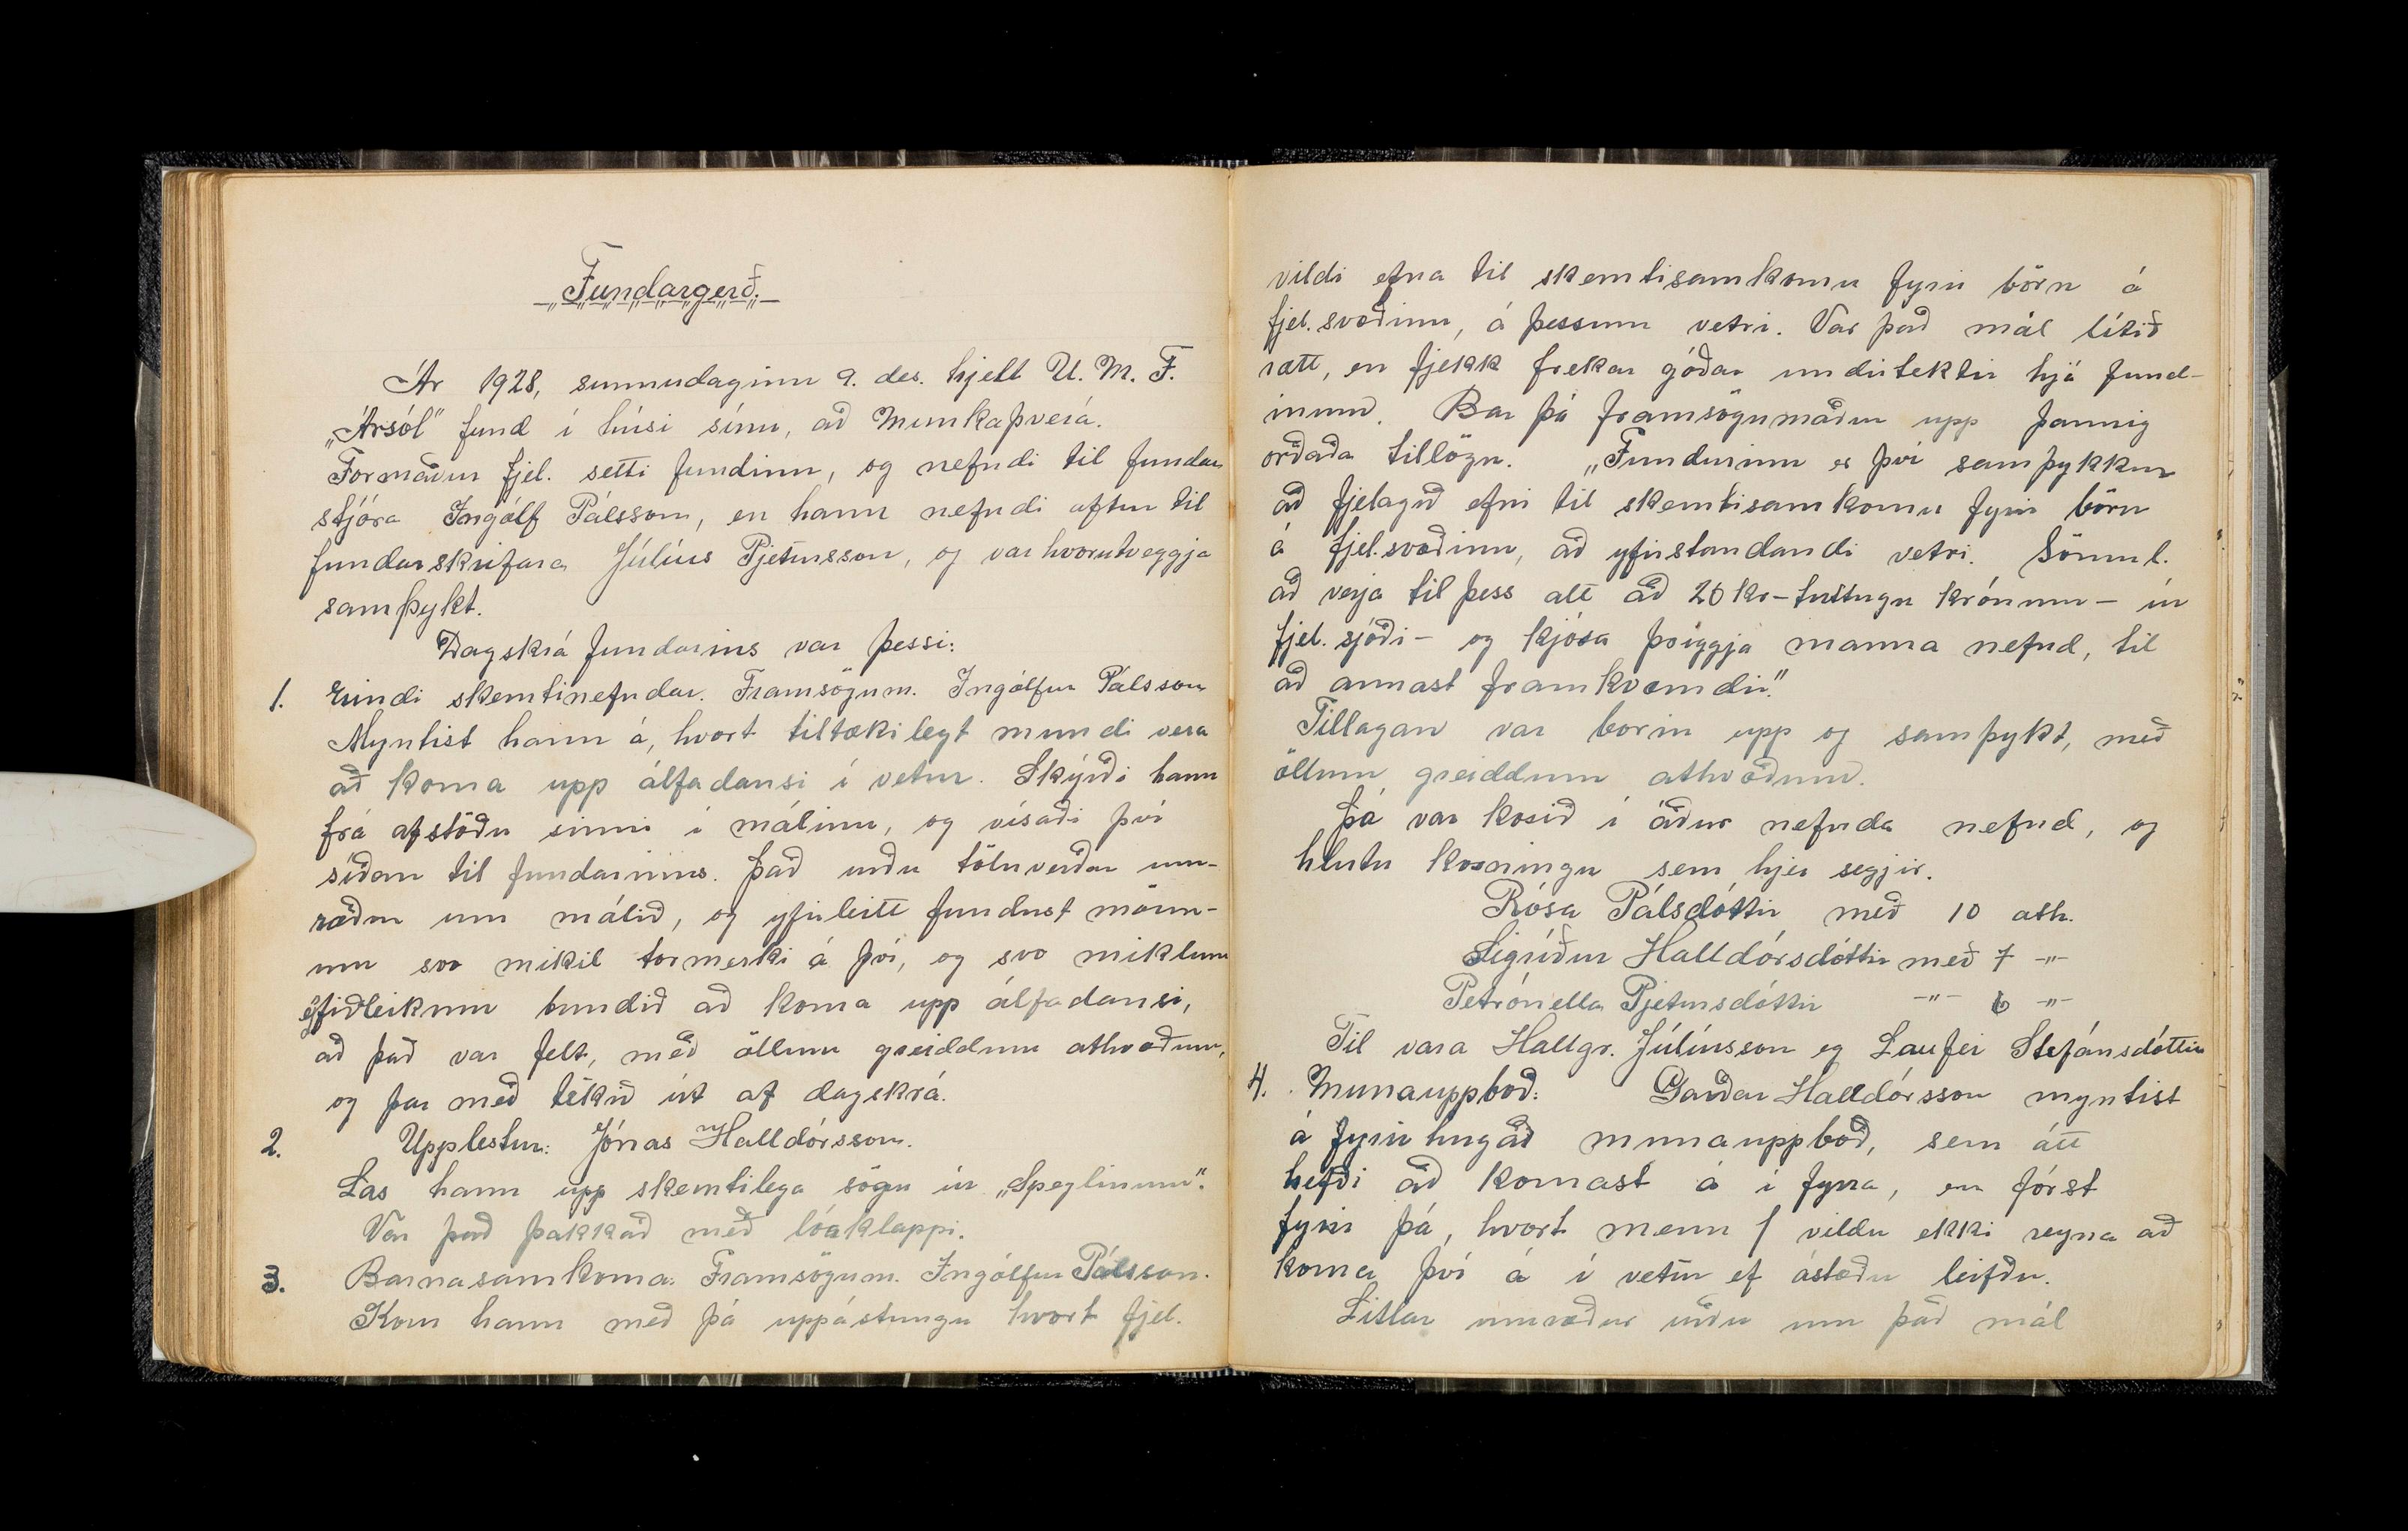 Fundargerð.
Ár 1928, sunnudaginn 9. des. hjelt U. M. F.
„Ársól" fund í húsi sínu, að Munkaþverá.
Formaður fjel. setti fundinn, og nefndi til fundar
stjóra Ingólf Pálsson, en hann nefndi aftur til
fundarskrifara Júlíus Pjetursson, og var hvorutveggja
samþykt.
Dagskrá fundarins var þessi:
1. Erindi skemtinefndar. Framsögum. Ingólfur Pálsson
Myntist hann á, hvort tiltækilegt mundi vera
að koma upp álfadansi í vetur. Skýrði hann
frá afstöðu sinni í málinu, og vísaði því
síðan til fundarinns. Það urðu töluverðar um-
ræður um málið, og yfirleitt fundust mönn-
um svo mikil tormerki á því, og svo miklum
erfiðleikum bundið að koma upp álfadansi,
að það var felt, með öllum greiddum athvæðum,
og þar með tekið út af dagskrá.
2. Upplestur: Jónas Halldórsson.
Las hann upp skemtilega sögu úr „Speglinum".
Var það þakkað með lóaklappi.
3. Barnasamkoma: Framsögum. Ingólfur Pálsson.
Kom hann með þá uppástungu hvort fjel.
vildi efna til skemtisamkomu fyrir börn á
fjel.svæðinu, á þessum vetri. Var það mál lítið
rætt, en fjekk frekar góðar undirtektir hjá fund-
inum. Bar þá framsögumaður upp þannig
orðaða tillögu. „Fundurinn er því samþykkur
að fjelagið efni til skemtisamkomu fyrir börn
á fjel.svæðinu, að yfirstandandi vetri. Sömul.
að verja til þess alt að 20 kr - tuttugu krónum - úr
fjel. sjóði - og kjósa þriggja manna nefnd, til
að annast framkvæmdir."
Tillagan var borin upp og samþykt, með
öllum greiddum athvæðum.
Þá var kosið í áður nefnda nefnd, og
hlutu kosningu sem hjer segjir.
Rósa Pálsdóttir með 10 ath.
Sigríður Halldórsdóttir með 7 -"-
Petrónella Pjetursdóttir -"- 6 -"-
Til vara Hallgr. Júlíusson og Laufei Stefánsdóttir
4. Munauppboð: Garðar Halldórsson myntist
á fyrirhugað munauppboð, sem átt
hefði að komast á í fyrra, en fórst
fyrir þá, hvort menn vildu ekki reyna að
koma því á í vetur ef ástæður leifðu.
Litlar umræður urðu um það mál